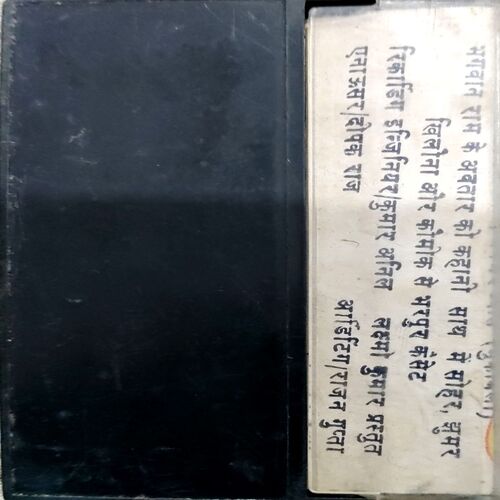 भगवान राम के अवतार की कहानी साथ में सोहर, झुमर
खिलोना और कौमीक से भरपुर कैसेट
रिकार्डिंग इन्जिनियर/कुमार अनिल लक्ष्मी कुमार प्रस्तुत
एनाऊसर/दीपक राज आडिटिंग/राजन गुप्ता